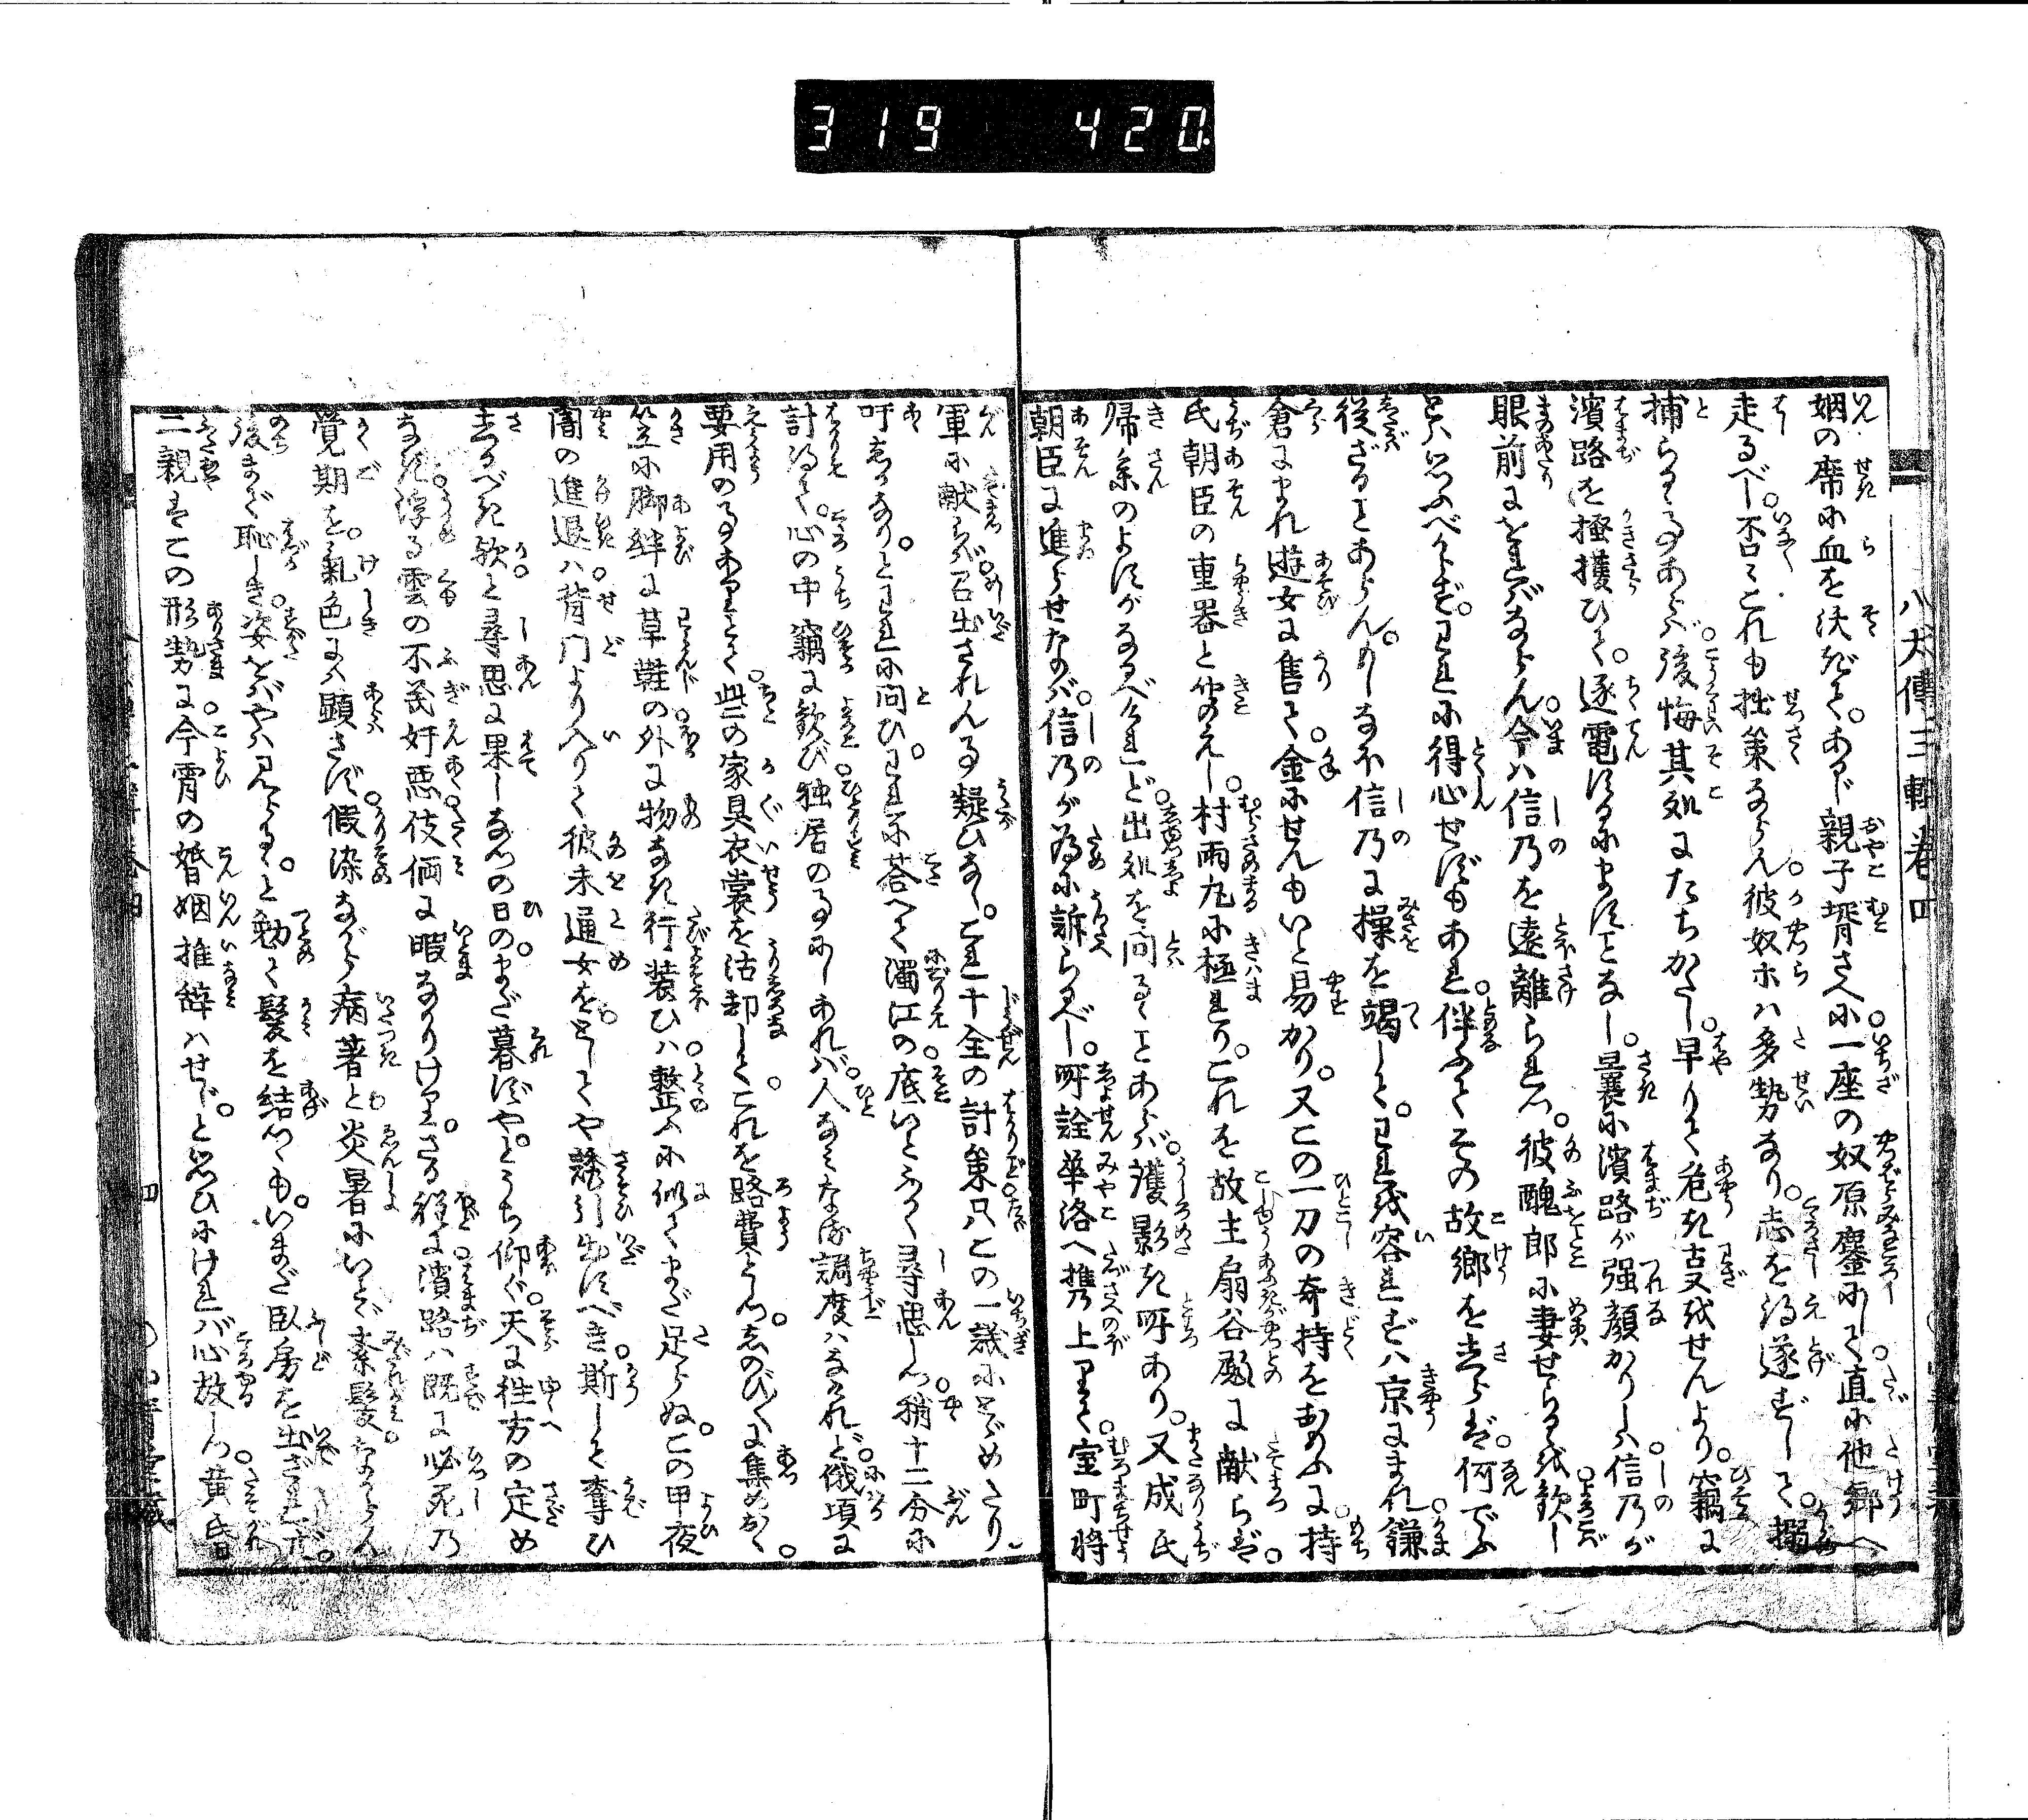 319 420
八犬傳三輯卷四
姻の席に血を沃ぎて。あるじ親子壻さへに一座の奴原鏖にして。直に他郷へ
走るべし。否々これも拙策ならん。彼奴ホハ多勢なり。志を得遂ずして。搦
捕らるゝ事あらば。後悔其処にたちかたし。早りて危き所行をせんより。竊に
濱路を掻攫ひて。逐電するにますことなし。曩に濱路が強顔かりしハ信乃が
眼前にをればならん。今ハ信乃を遠離られつ。彼醜郎に妻せらるゝを歓し
とハ思ふべからず。われに得心せずもあれ。伴ふてその故郷を去らば。何でふ
従ざることあらん。もしなほ信乃に操を竭して。われを容れずハ京にまれ鎌
倉にまれ遊女に售て。金にせんもいと易かり。又この一刀の奇特をおもふに。持
氏朝臣の重器と仰えし。村雨丸に極れり。これを故主扇谷殿に献らば。
帰参のよすがなるべけれど。出処を問るゝことあらば。護影き所あり。又成氏
朝臣に進らせなば。信乃が為に訴らるべし。所詮華洛へ携上りて。室町將
軍に献らば。召出されん事疑ひなし。これ十全の計策只この一議にとゞめたり。
吁しかなりとわれに問ひ。われに荅へて濁江の。底いとふかく尋思しつ。稍十二分に
計得て。心の中竊に歓び独居の事にしあれバ。人なみなる調度ハなけれど。俄頃に
要用の事ありとて。此二の家具衣裳を沽却して。これを路費とし。しのび〳〵に集めおく。
笠に脚絆に草鞋の外に物なき行装ひハ。整ふに似てまだ足らぬ。この甲夜
闇の進退ハ。背門より入りて彼未通女を。としてや誘引出すべき。斯して奪ひ
去るべき歟と尋思に果しなつの日の。まだ暮ずやとうち仰ぐ。天に徃方の定め
なき浮る雲の不義奸悪。伎倆に暇なかりけり。さる程に濱路ハ既に必死の
覚期を。氣色にハ顕さず。假染ながら病著と炎暑にいとゞ紊髪。なからん
後まで恥しき。姿をバやハ見らるゝ。と勉て髪を結つくも。いまだ臥房を出ざれば。
二親はこの形勢に。今宵の婚姻推辞ハせじ。と思ひにけれバ心放しつ。黄昏